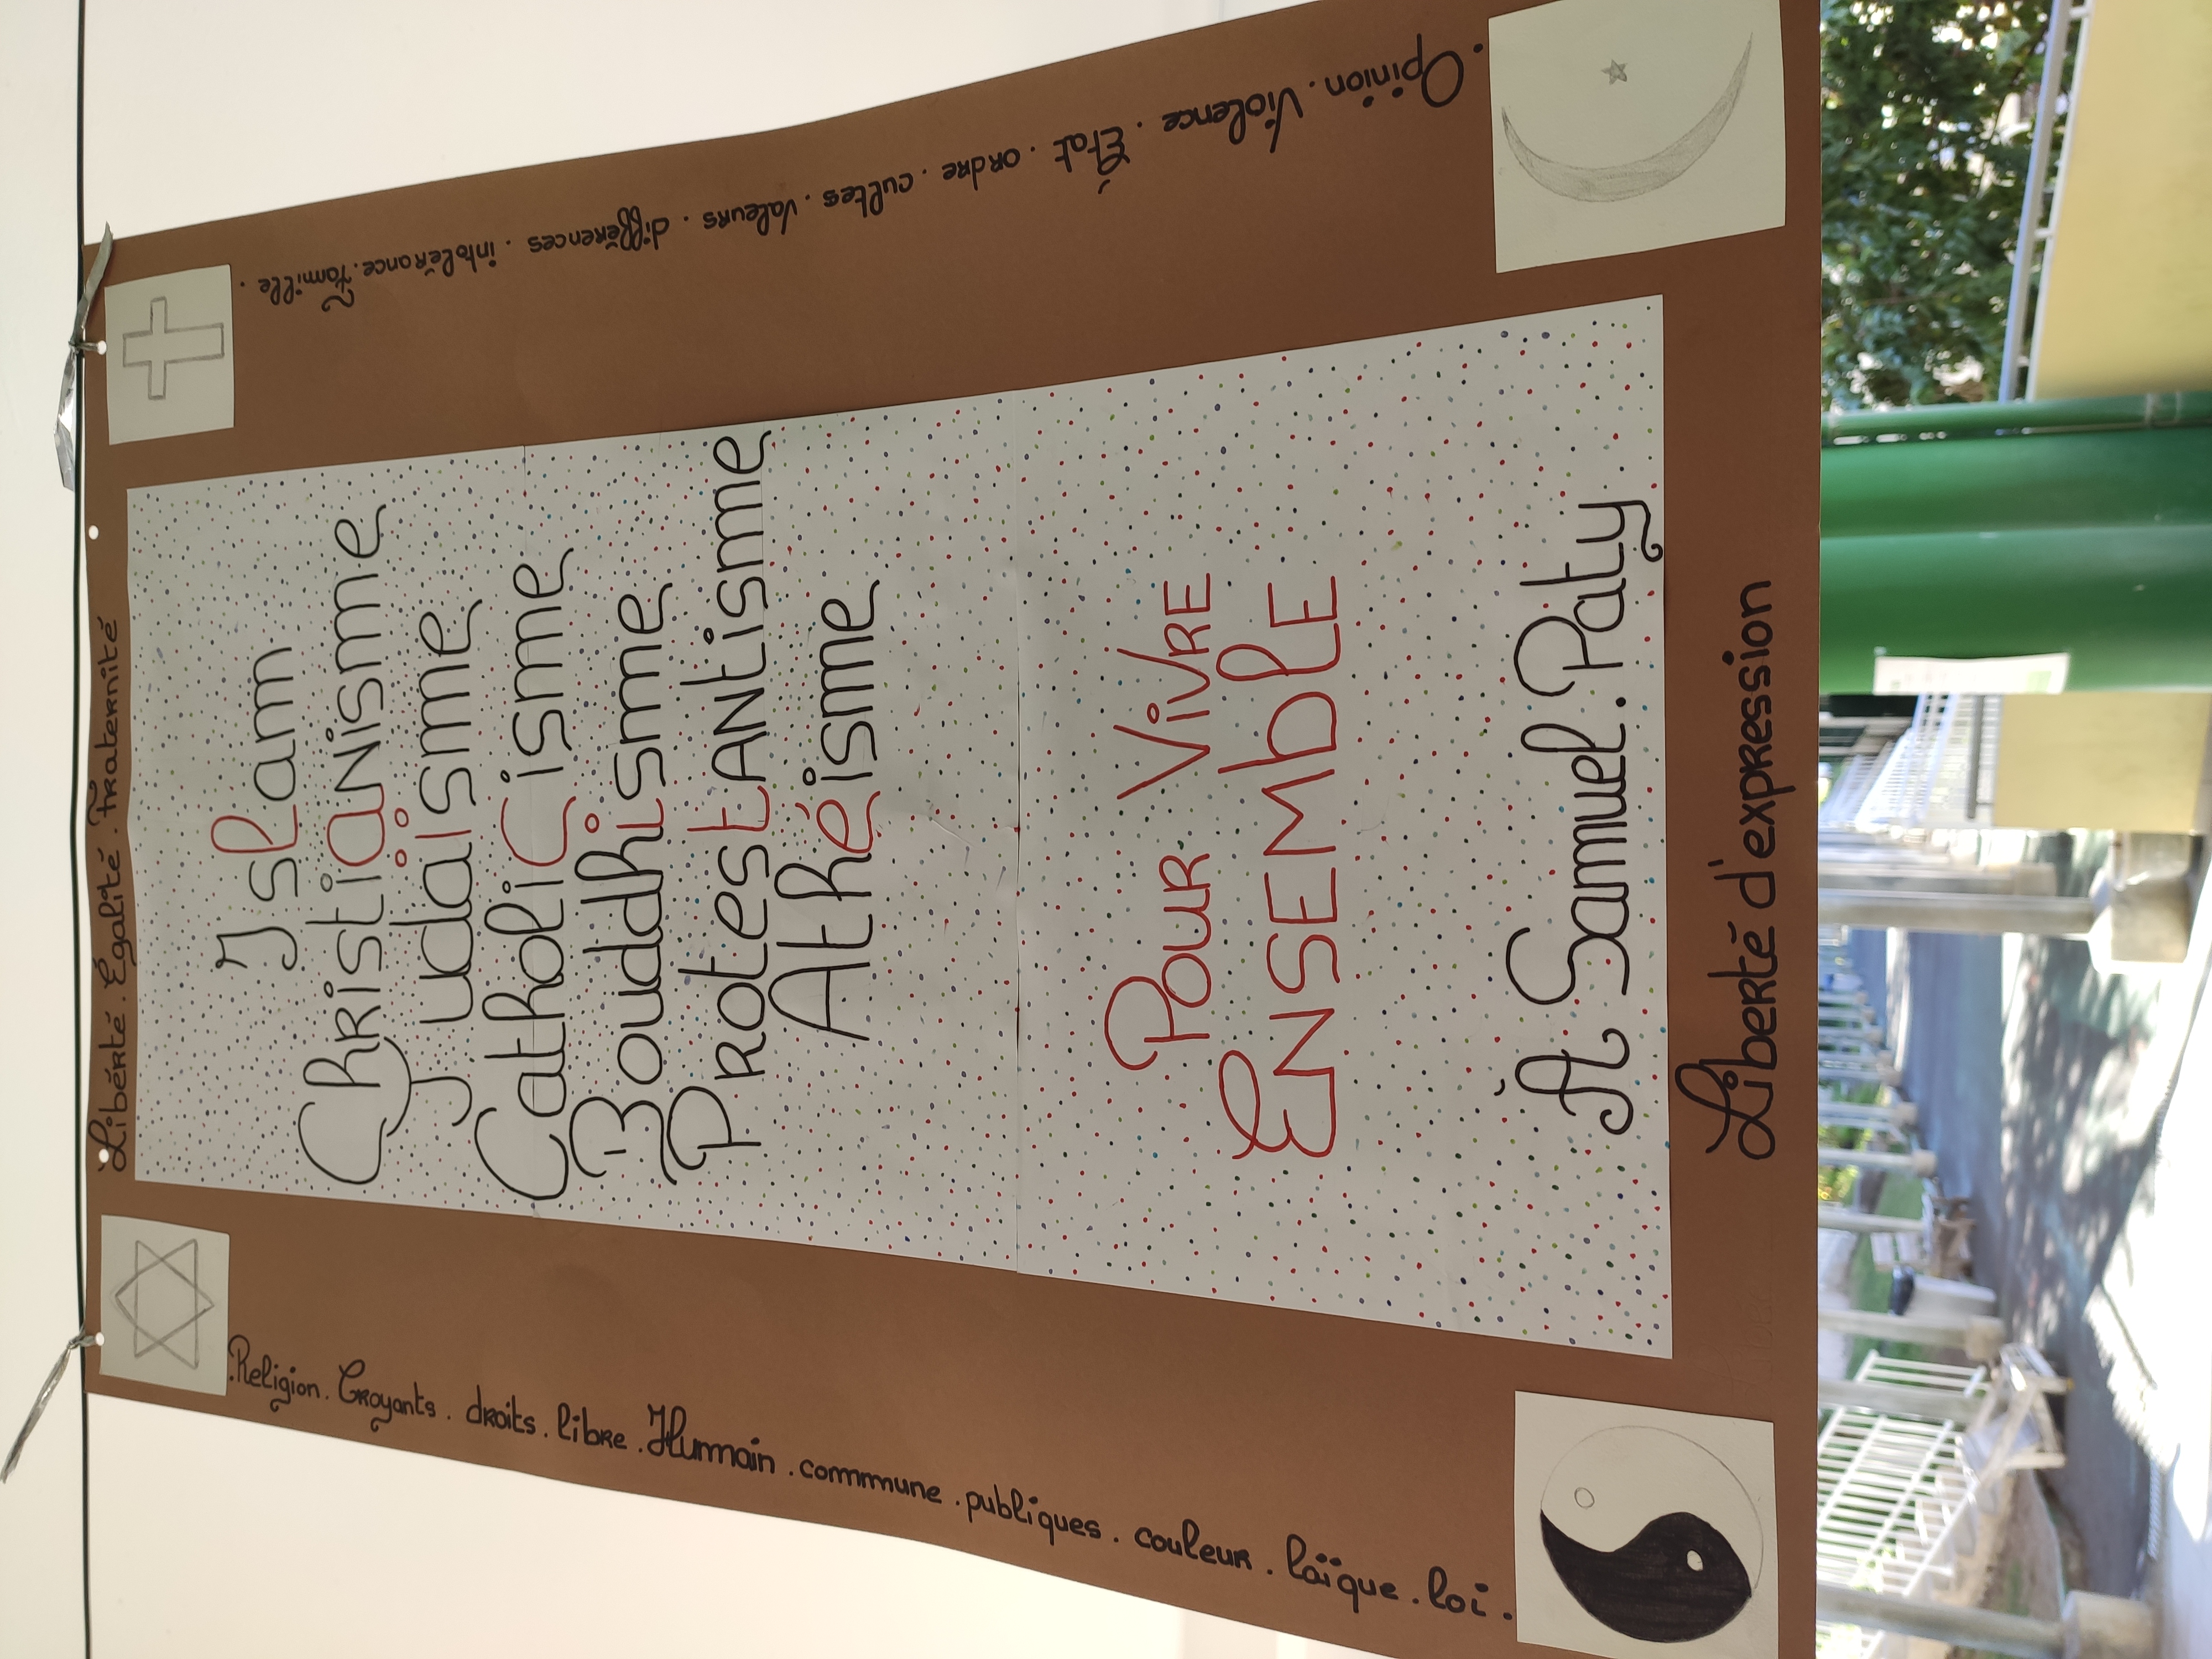 Liberté. Égalité. Fraternité
Islam
Christianisme
Judaïsme
Catholicisme
Bouddhisme
Protestantisme
Athéisme
Pour ViVRE
ENSEMblE
À Samuel. Paty
Liberté d'expression
.Religion. Croyants. droits. libre. Humain. commune. publiques. couleur. laïque. loi.
.Opinion. Violence. État. ordre. cultes. Valeurs. différences. intolérance. Famille.